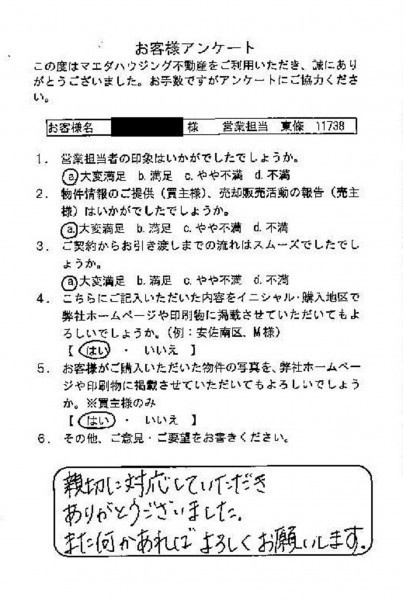 お客様アンケート
この度はマエダハウジング不動産をご利用いただき、誠にあり
がとうございました。お手数ですがアンケートにご協力くださ
い。
お客様名 様 営業担当 東條 11738
1. 営業担当者の印象はいかがでしたでしょうか。
a.大変満足 b.満足 c.やや不満 d.不満
2. 物件情報のご提供(買主様)、売却販売活動の報告(売主
様)はいかがでしたでしょうか。
a.大変満足 b.満足 c.やや不満 d.不満
3. ご契約からお引き渡しまでの流れはスムーズでしたでし
ょうか。
a.大変満足 b.満足 c.やや不満 d.不満
4. こちらにご記入いただいた内容をイニシャル・購入地区で
弊社ホームページや印刷物に掲載させていただいてもよ
ろしいでしょうか。(例:安佐南区、M様)
【 はい ・ いいえ 】
5. お客様がご購入いただいた物件の写真を、弊社ホームペー
ジや印刷物に掲載させていただいてもよろしいでしょう
か。※買主様のみ
【 はい ・ いいえ 】
6. その他、ご意見・ご要望をお書きください。
親切に対応していただき
ありがとうございました。
また何かあれば よろしくお願いします。